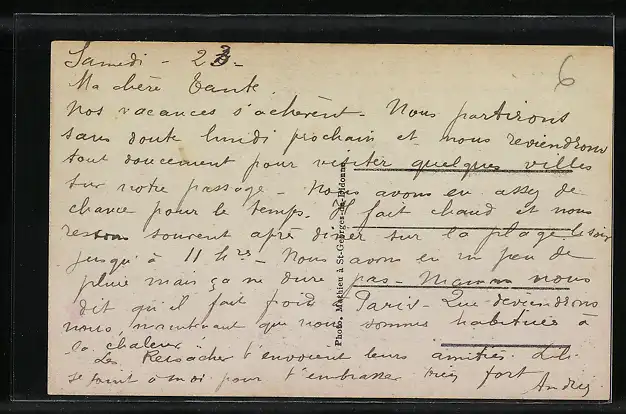 Samedi - 23 -
Ma chère Tante.
Nos vacances s'achèvent. Nous partirons
sans doute lundi prochain et nous reviendrons
tout doucement pour visiter quelques villes
sur notre passage - Nous avons eu assez de
chance pour le temps. Il fait chaud et nous
restons souvent après dîner sur la plage le soir
jusqu'à 11 hres - Nous avons eu un peu de
pluie mais ça ne dure pas - Maman nous
dit qu'il fait froid à Paris - Que deviendrons
nous, maintenant que nous sommes habitués à
la chaleur.
Les t'envoient leurs amitiés.
se joint à moi pour t'embrasser bien fort
6
Photo. Mathieu à St-Georges-de-Didonne